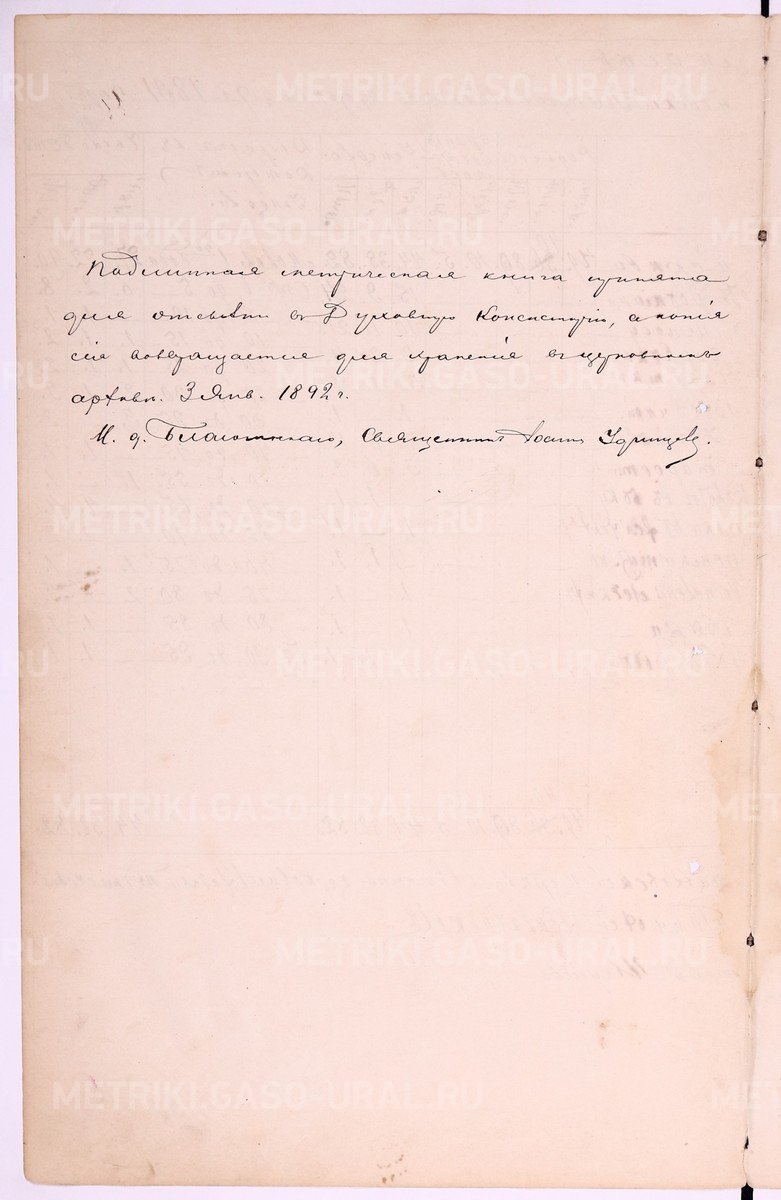 Подлинная метрическая книга принята
для отсылки въ Духовную Консисторію, а копія
сія возвращается для храненія въ церковномъ
архивѣ. 3 Янв. 1892 г.
И. д. Благочиннаго, Священникъ Іоаннъ Удинцевъ.
METRIKI.GASO-URAL.RU